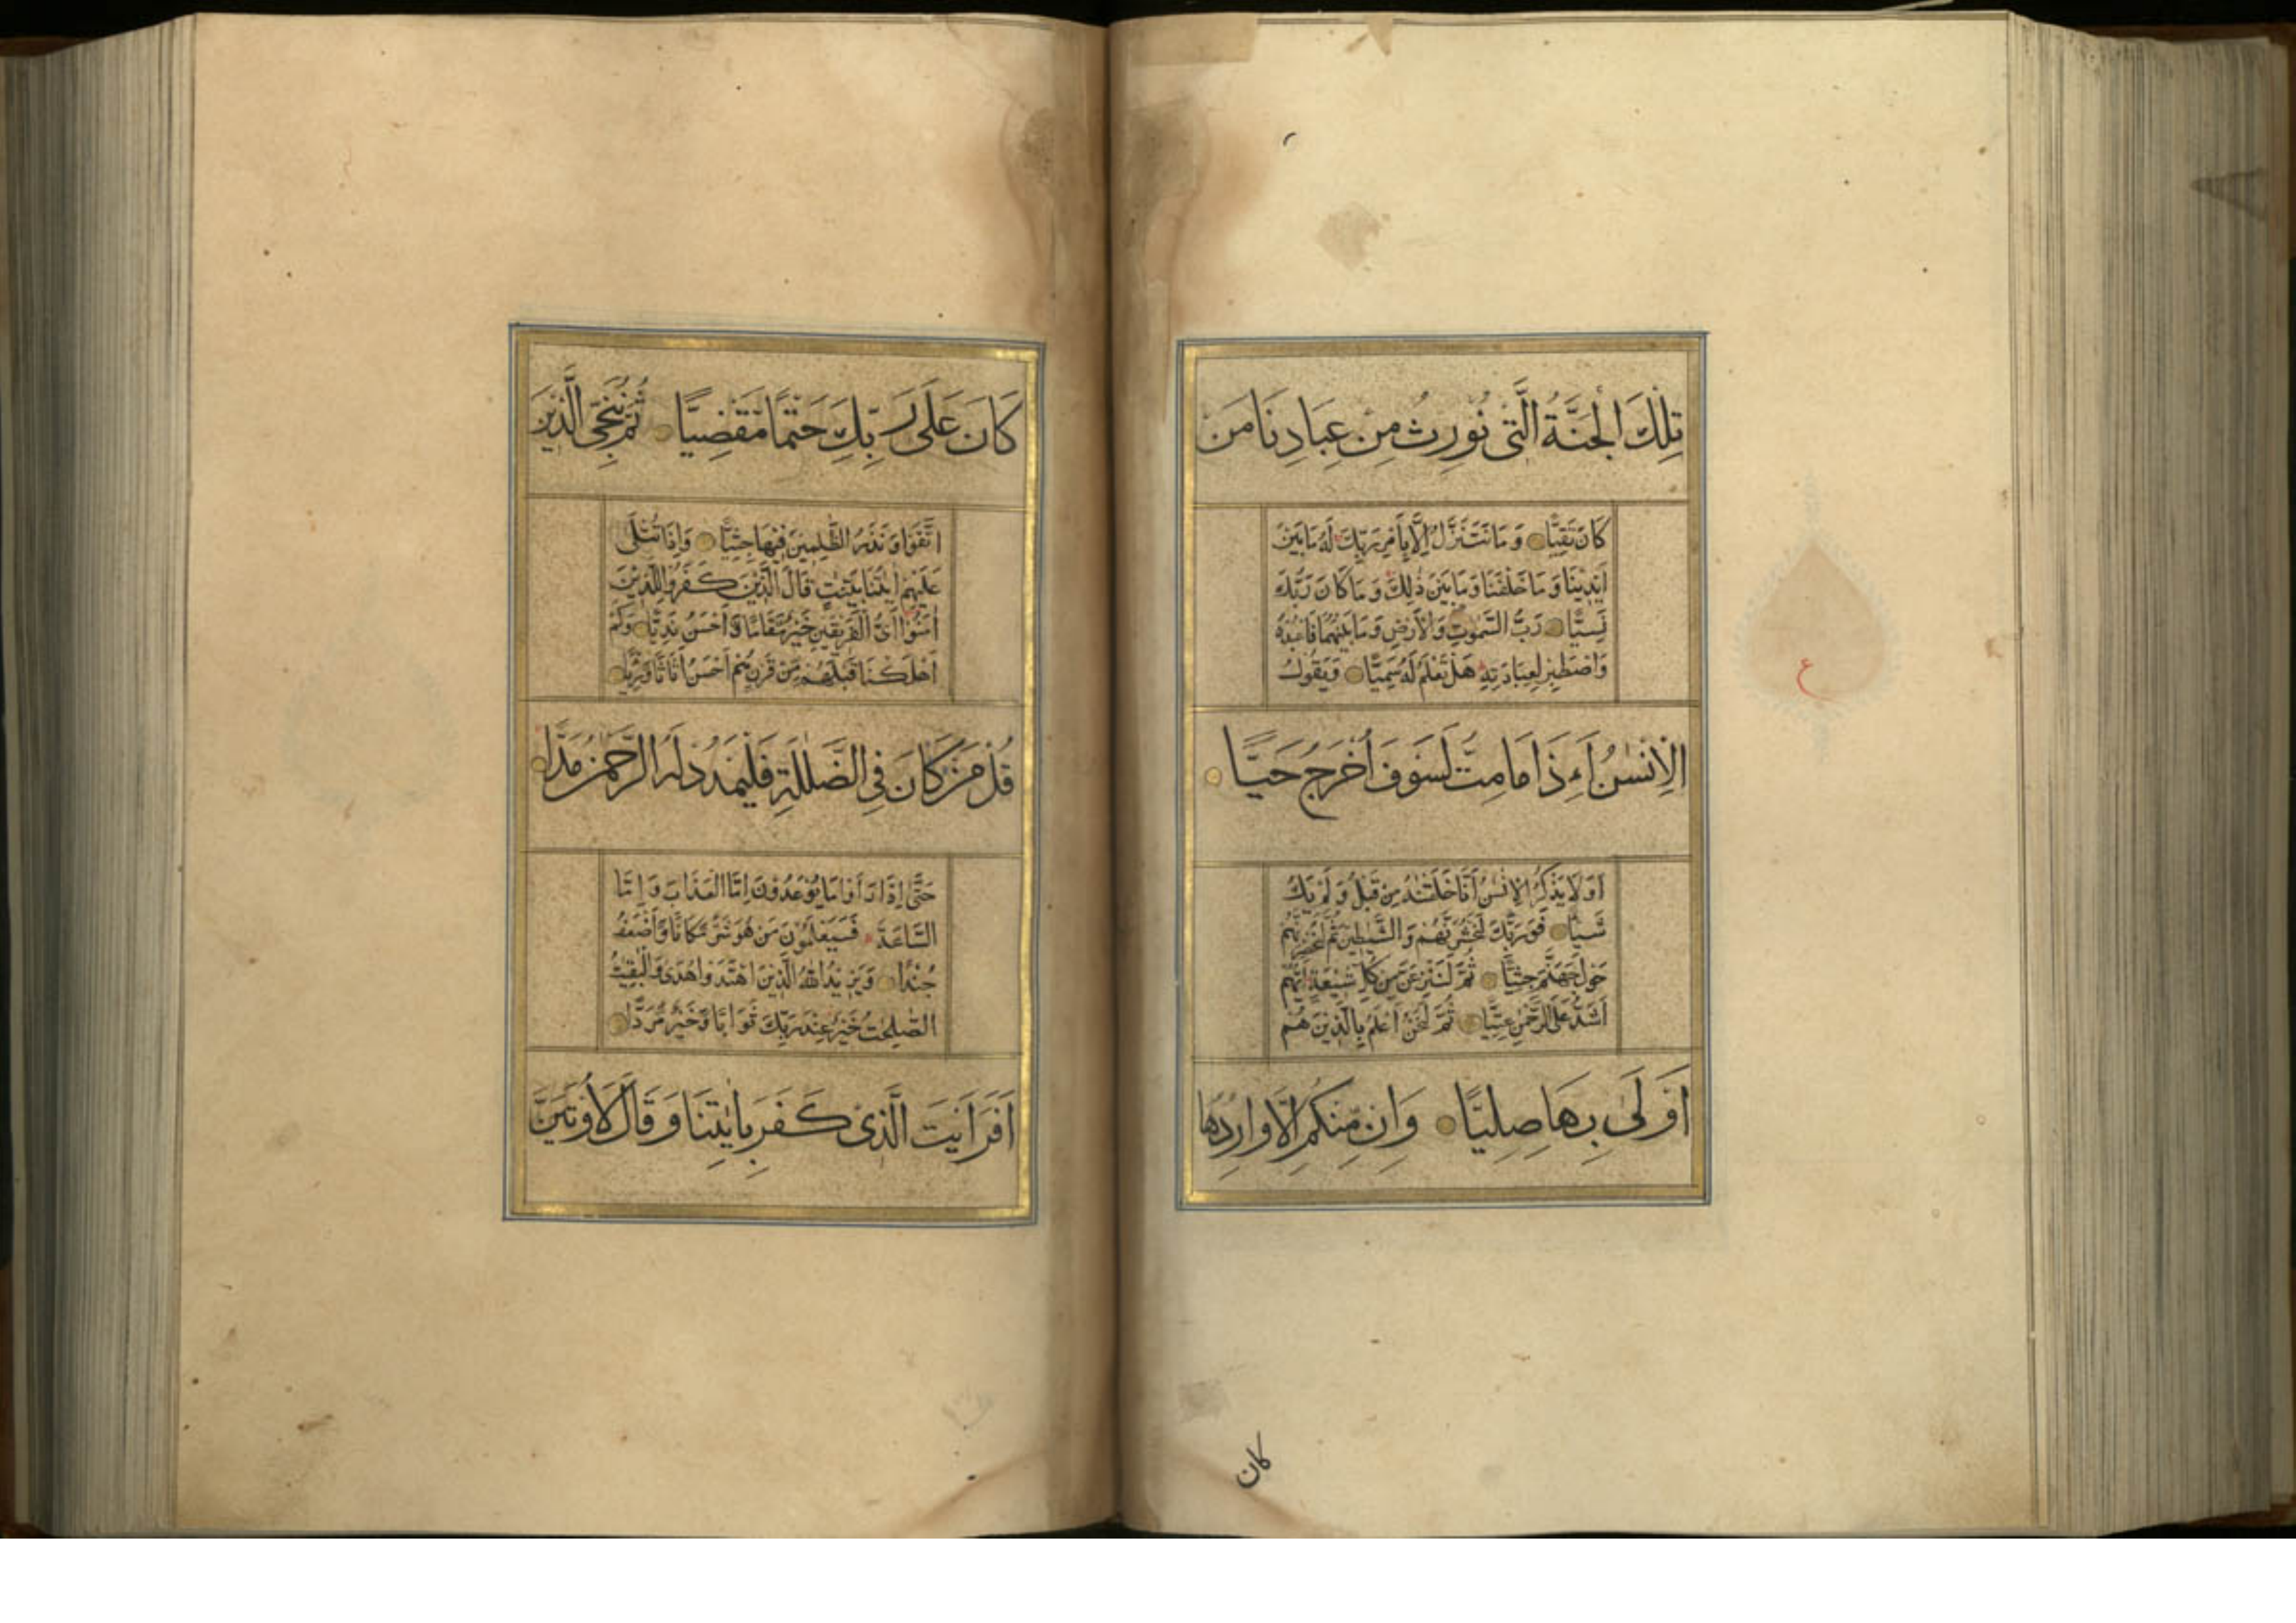 تِلْكَ الْجَنَّةُ الَّتِي نُورِثُ مِنْ عِبَادِنَا مَنْ
كَانَ تَقِيًّا وَمَا نَتَنَزَّلُ إِلَّا بِأَمْرِ رَبِّكَ لَهُ مَا بَيْنَ
أَيْدِينَا وَمَا خَلْفَنَا وَمَا بَيْنَ ذٰلِكَ وَمَا كَانَ رَبُّكَ
نَسِيًّا رَبُّ السَّمٰوٰتِ وَالْأَرْضِ وَمَا بَيْنَهُمَا فَاعْبُدْهُ
وَاصْطَبِرْ لِعِبَادَتِهِ هَلْ تَعْلَمُ لَهُ سَمِيًّا وَيَقُولُ
الْإِنْسٰنُ أَءِذَا مَا مِتُّ لَسَوْفَ أُخْرَجُ حَيًّا
أَوَلَا يَذْكُرُ الْإِنْسٰنُ أَنَّا خَلَقْنٰهُ مِنْ قَبْلُ وَلَمْ يَكُ
شَيْئًا فَوَرَبِّكَ لَنَحْشُرَنَّهُمْ وَالشَّيٰطِينَ ثُمَّ لَنُحْضِرَنَّهُمْ
حَوْلَ جَهَنَّمَ جِثِيًّا ثُمَّ لَنَنْزِعَنَّ مِنْ كُلِّ شِيعَةٍ أَيُّهُمْ
أَشَدُّ عَلَى الرَّحْمٰنِ عِتِيًّا ثُمَّ لَنَحْنُ أَعْلَمُ بِالَّذِينَ هُمْ
أَوْلَىٰ بِهَا صِلِيًّا وَإِنْ مِنْكُمْ إِلَّا وَارِدُهَا
كان
ع
كَانَ عَلَىٰ رَبِّكَ حَتْمًا مَقْضِيًّا ثُمَّ نُنَجِّي الَّذِينَ
اتَّقَوْا وَنَذَرُ الظّٰلِمِينَ فِيهَا جِثِيًّا وَإِذَا تُتْلَىٰ
عَلَيْهِمْ اٰيٰتُنَا بَيِّنٰتٍ قَالَ الَّذِينَ كَفَرُوا لِلَّذِينَ
اٰمَنُوا أَيُّ الْفَرِيقَيْنِ خَيْرٌ مَقَامًا وَأَحْسَنُ نَدِيًّا وَكَمْ
أَهْلَكْنَا قَبْلَهُمْ مِنْ قَرْنٍ هُمْ أَحْسَنُ أَثَاثًا وَرِءْيًا
قُلْ مَنْ كَانَ فِي الضَّلٰلَةِ فَلْيَمْدُدْ لَهُ الرَّحْمٰنُ مَدًّا
حَتَّىٰ إِذَا رَأَوْا مَا يُوعَدُونَ إِمَّا الْعَذَابَ وَإِمَّا
السَّاعَةَ فَسَيَعْلَمُونَ مَنْ هُوَ شَرٌّ مَكَانًا وَأَضْعَفُ
جُنْدًا وَيَزِيدُ اللّٰهُ الَّذِينَ اهْتَدَوْا هُدًى وَالْبٰقِيٰتُ
الصّٰلِحٰتُ خَيْرٌ عِنْدَ رَبِّكَ ثَوَابًا وَخَيْرٌ مَرَدًّا
أَفَرَأَيْتَ الَّذِي كَفَرَ بِاٰيٰتِنَا وَقَالَ لَأُوتَيَنَّ